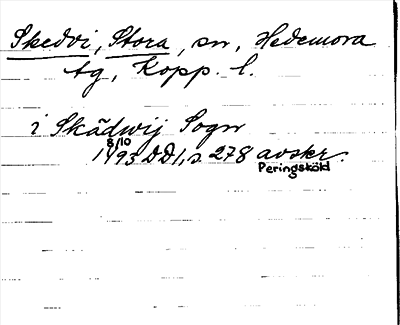 Skedvi, Stora, sn, Hedemora
tg, Kopp. l.
i Skådwij Sogn
8/10
1493 DD1, s. 278 avskr.
Peringsköld